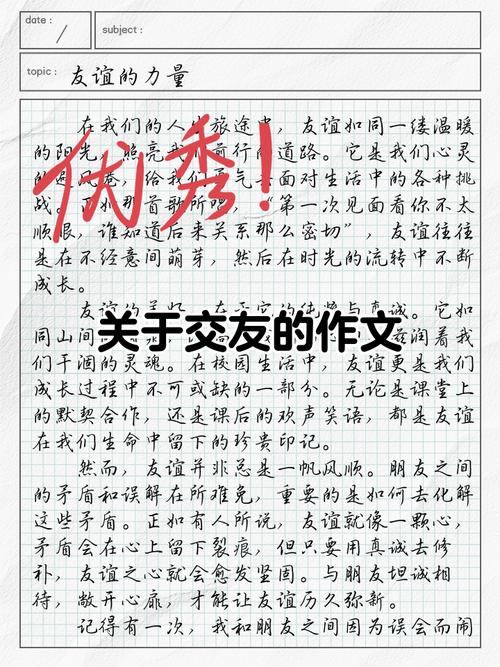 date :
subject :
topic : 友谊的力量
在我们的人生旅途中，友谊如同一缕温暖
的阳光，照亮我们前行的道路。它是我们心灵
的避风港，给我们勇气去面对生活中的各种挑
战。正如那首歌所唱，“第一次见面看你不太
顺眼，谁知道后来关系那么密切”，友谊往往
是在不经意间萌芽，然后在时光的流转中不断
成长。
优秀！
友谊的美好，在于它的纯粹与真诚。它如
关于交友的作文
同山间滋润着我
们干涸的灵魂。在校园生活中，友谊更是我们
成长过程中不可或缺的一部分。无论是课堂上
的默契合作，还是课后的欢声笑语，都是友谊
在我们生命中留下的珍贵印记。
然而，友谊并非总是一帆风顺。朋友之间
的矛盾和误解在所难免，重要的是如何去化解
这些矛盾。正如有人所说，友谊就像一颗心，
矛盾会在心上留下裂痕，但只要用真诚去修
补，友谊之心就会愈发坚固。与朋友坦诚相
待，敞开心扉，才能让友谊历久弥新。
记得有一次，我和朋友之间因为误会而闹